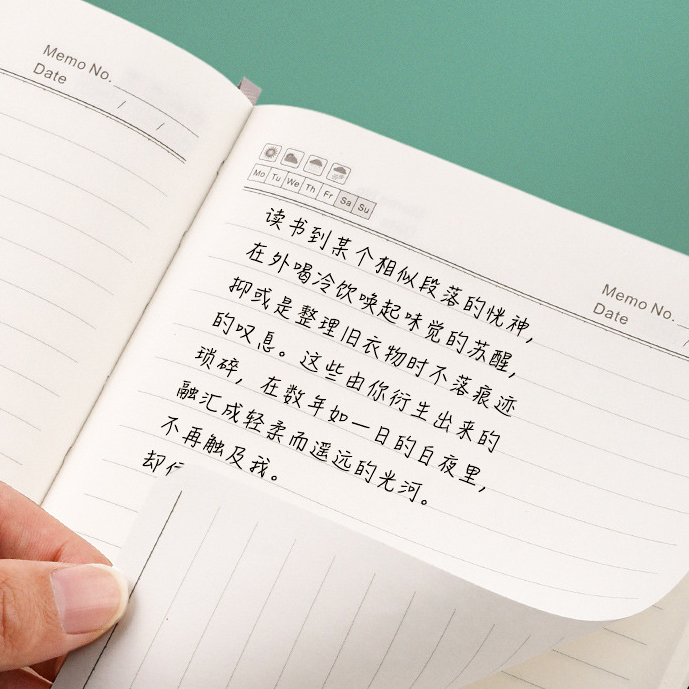 Memo No.
Date / /
Mo Tu We Th Fr Sa Su
Memo No.
Date /
读书到某个相似段落的恍神,
在外喝冷饮唤起味觉的苏醒,
抑或是整理旧衣物时不落痕迹
的叹息。这些由你衍生出来的
琐碎,在数年如一日的白夜里,
融汇成轻柔而遥远的光河。
不再触及我。
却